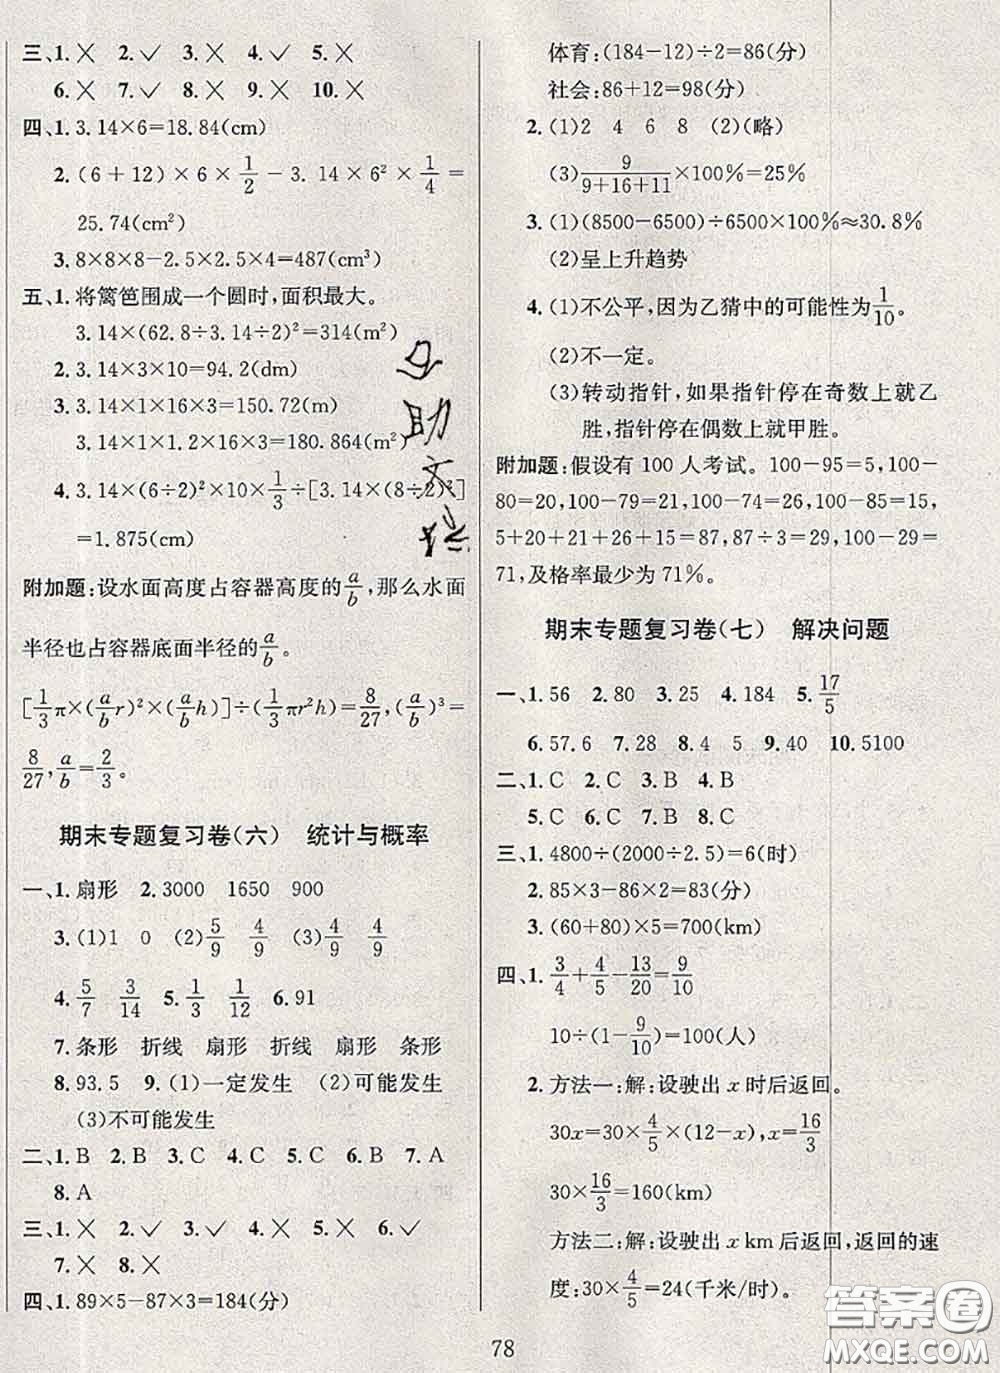 三、1.╳ 2.✓ 3.╳ 4.✓ 5.╳
6.╳ 7.✓ 8.╳ 9.╳ 10.╳
四、1. 3.14×6=18.84(cm)
2. (6+12)×6×1/2-3.14×6²×1/4=
25.74(cm²)
3. 8×8×8-2.5×2.5×4=487(cm³)
五、1. 将篱笆围成一个圆时,面积最大。
3.14×(62.8÷3.14÷2)²=314(m²)
2. 3.14×3×10=94.2(dm)
3. 3.14×1×16×3=150.72(m)
3.14×1×1.2×16×3=180.864(m²)
4. 3.14×(6÷2)²×10×1/3÷[3.14×(8÷2)²]
=1.875(cm)
附加题:设水面高度占容器高度的a/b,那么水面
半径也占容器底面半径的a/b。
[1/3π×(a/b r)²×(a/b h)]÷(1/3πr²h)=8/27,(a/b)³=
8/27,a/b=2/3。
期末专题复习卷(六) 统计与概率
一、1.扇形 2.3000 1650 900
3.(1)1 0 (2)5/9 4/9 (3)4/9 4/9
4.5/7 3/14 5.1/3 1/12 6.91
7.条形 折线 扇形 折线 扇形 条形
8.93.5 9.(1)一定发生 (2)可能发生
(3)不可能发生
二、1.B 2.B 3.C 4.C 5.C 6.B 7.A
8.A
三、1.╳ 2.✓ 3.✓ 4.╳ 5.╳ 6.✓
7.╳ 8.╳
四、1. 89×5-87×3=184(分)
体育:(184-12)÷2=86(分)
社会:86+12=98(分)
2. (1)2 4 6 8 (2)(略)
(3)9/(9+16+11)×100%=25%
3. (1)(8500-6500)÷6500×100%≈30.8%
(2)呈上升趋势
4. (1)不公平,因为乙猜中的可能性为1/10。
(2)不一定。
(3)转动指针,如果指针停在奇数上就乙
胜,指针停在偶数上就甲胜。
附加题:假设有100人考试。100-95=5,100-
80=20,100-79=21,100-74=26,100-85=15,
5+20+21+26+15=87,87÷3=29,100-29=
71,及格率最少为71%。
期末专题复习卷(七) 解决问题
一、1.56 2.80 3.25 4.184 5.17/5
6.57.6 7.28 8.4 5 9.40 10.5100
二、1.C 2.C 3.B 4.B
5.C 6.C 7.B 8.C
三、1. 4800÷(2000÷2.5)=6(时)
2. 85×3-86×2=83(分)
3. (60+80)×5=700(km)
四、1. 3/4+4/5-13/20=9/10
10÷(1-9/10)=100(人)
2. 方法一:解:设驶出x时后返回。
30x=30×4/5×(12-x),x=16/3
30×16/3=160(km)
方法二:解:设驶出x km后返回,返回的速
度:30×4/5=24(千米/时)。
78
答案圈
MXQE.COM